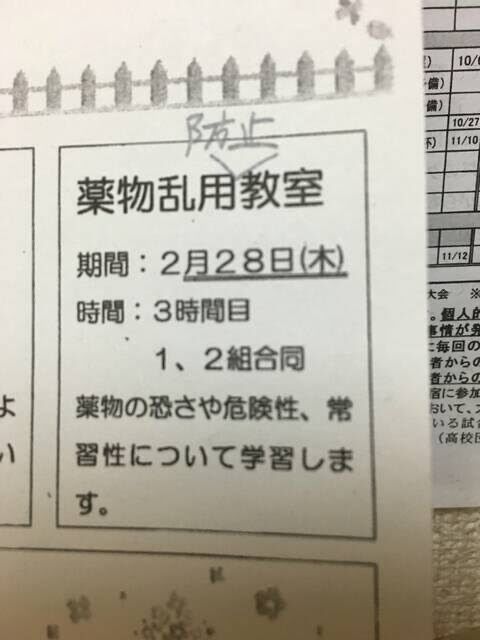 防止
薬物乱用教室
期間：2月28日(木)
時間：3時間目
1、2組合同
薬物の恐さや危険性、常
習性について学習しま
す。
よ
い
備)
備)
10/27
11/10
11/12
大会 ※
。個人的
事情が発
に毎回の
者からの
者からの
宿に参加
おいて、
いる試合
(高校団